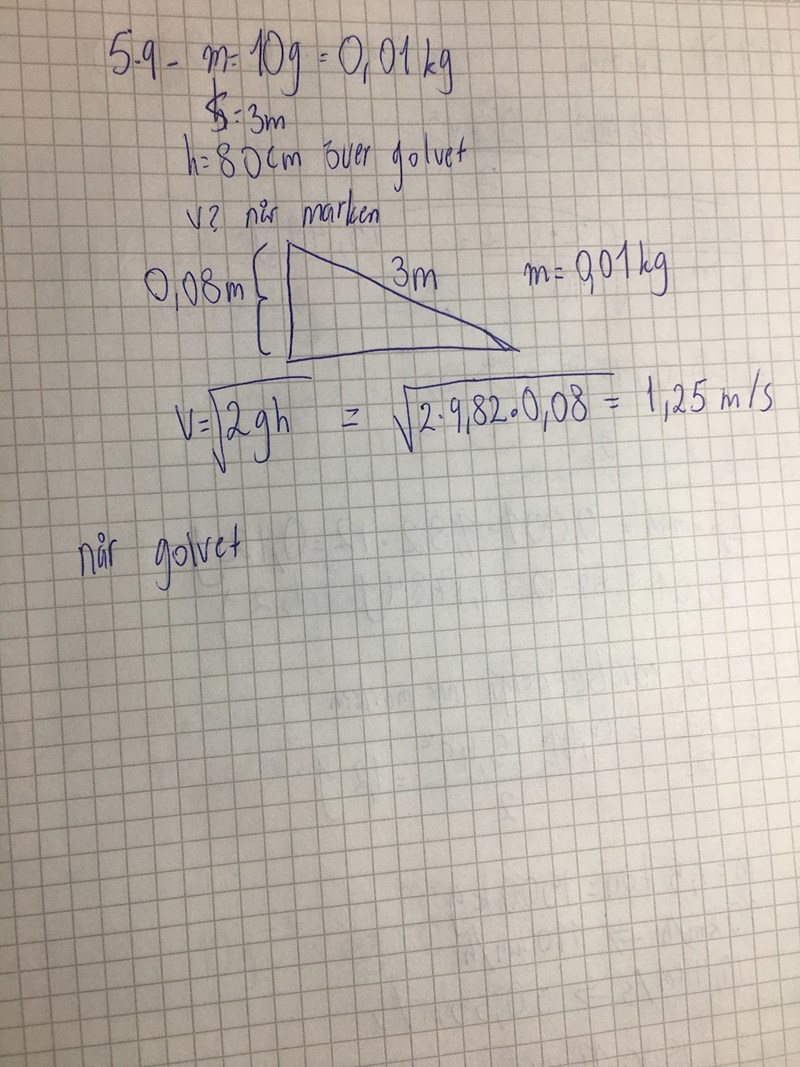 5.9- m=10g=0,01kg
S=3m
h=80cm över golvet
v? når marken
0,08m { 3m m=0,01kg
V=√2gh = √2·9,82·0,08 = 1,25 m/s
når golvet